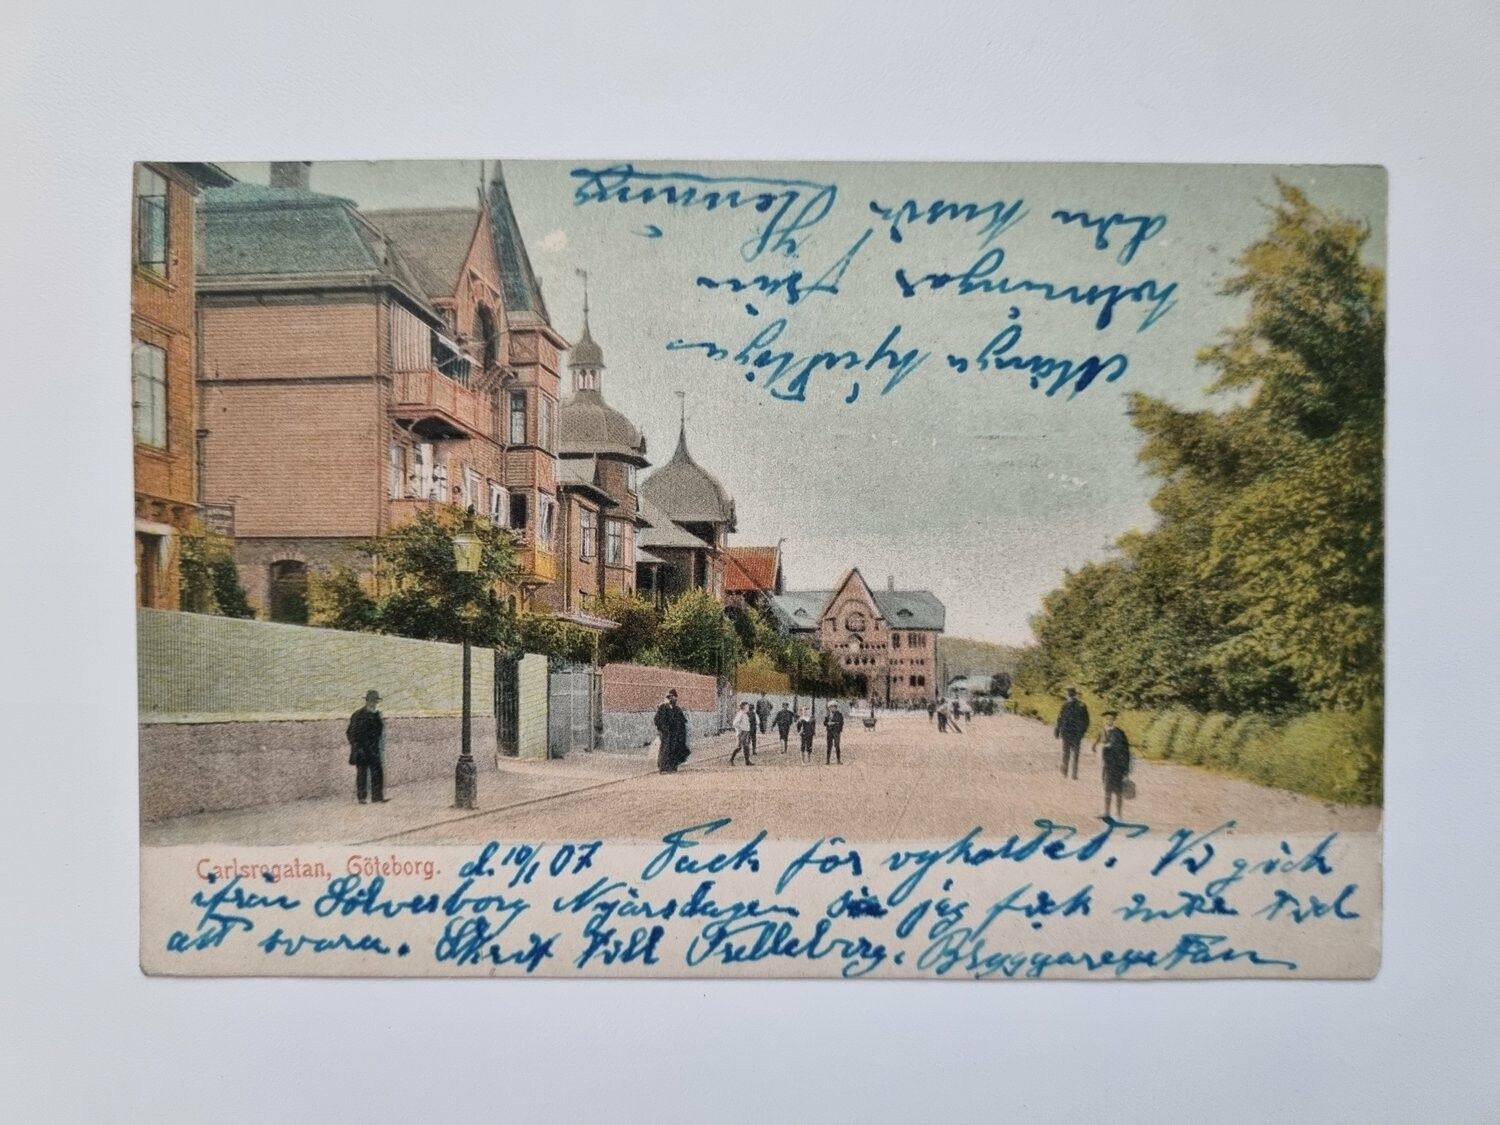 Carlsrogatan, Göteborg. d. 10/1 07 Tack för vykortet. Vi gick
ifrån Sölvesborg Nyårsdagen så jag fick inte tid
att svara. Skrif till Trelleborg. Bryggaregatan
Många hjertliga
helsningar från
din kusin
H Henning